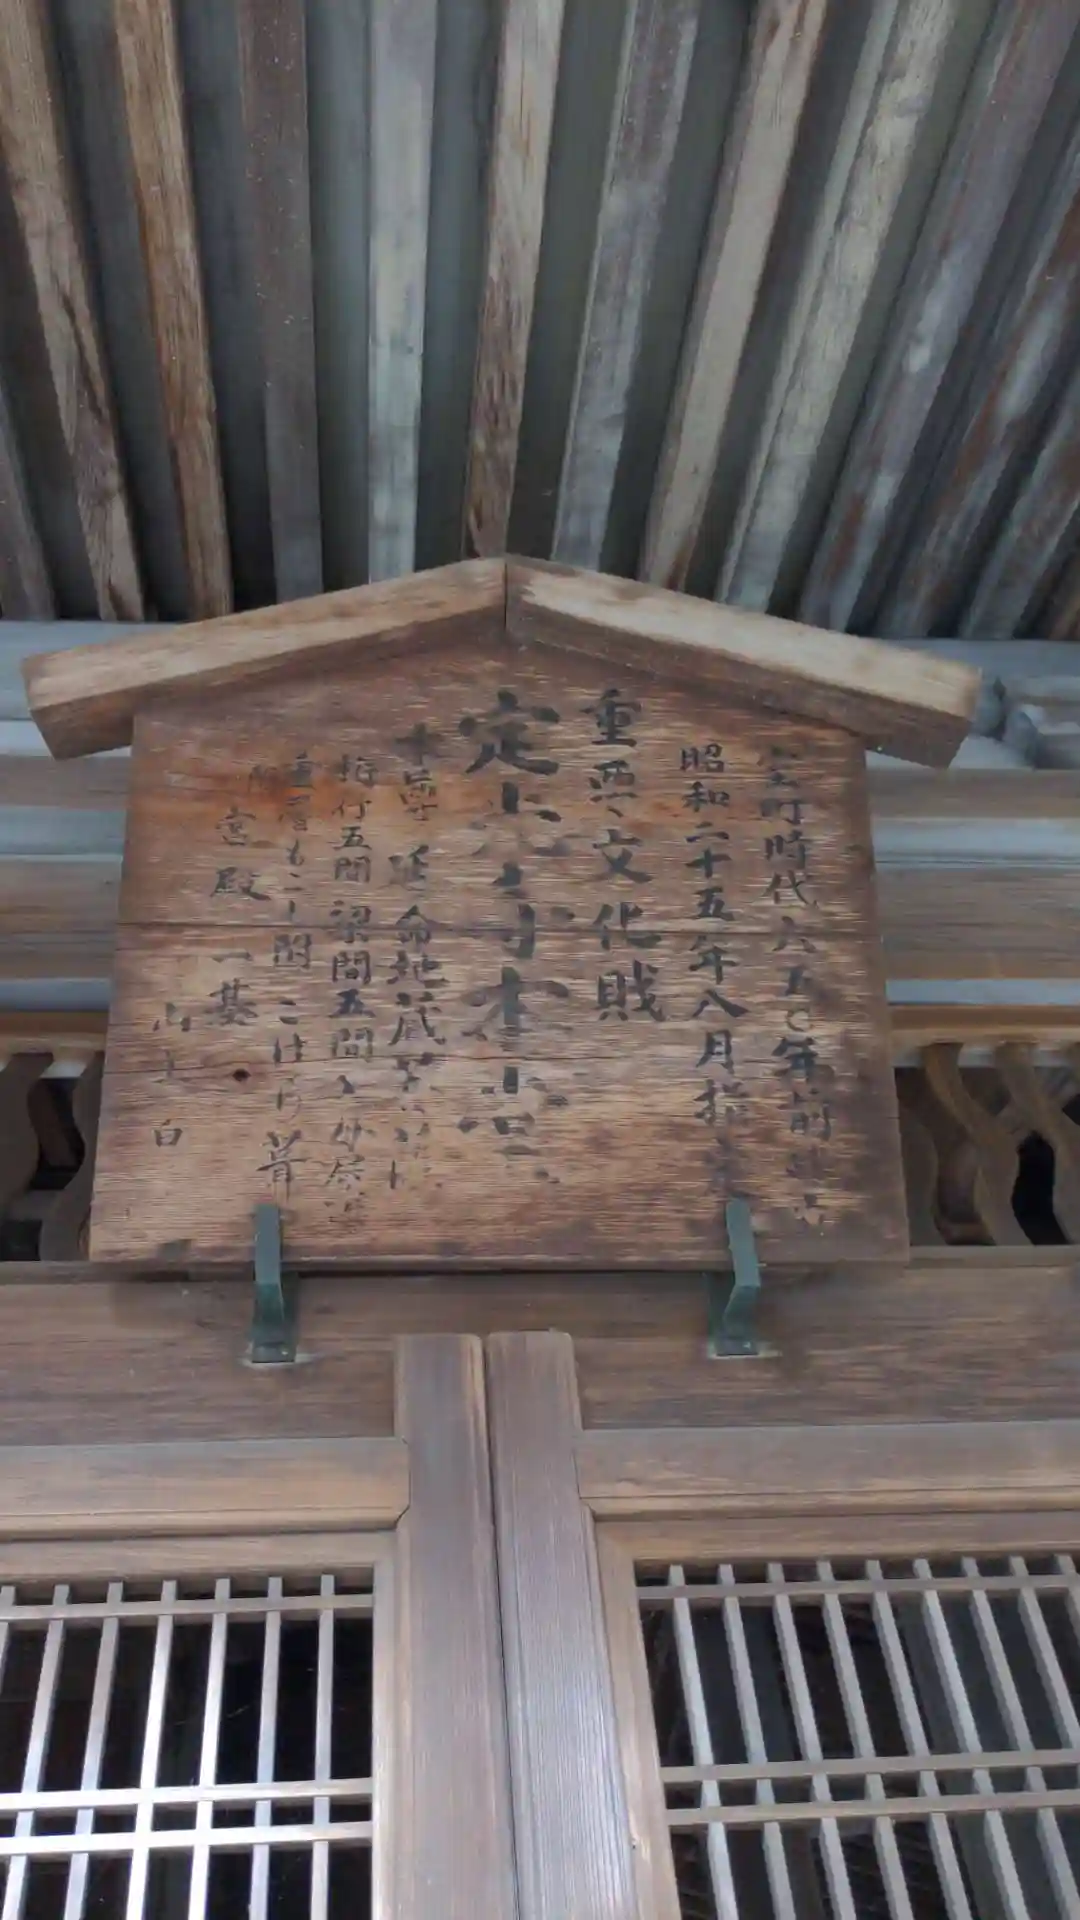 室町時代六五〇年前建立
昭和二十五年八月指定
重要文化財
定光寺本堂
本尊 延命地蔵菩薩
桁行五間 梁間五間 入母屋造
重層もこし附 こけら葺
附宮殿 一基
山主白